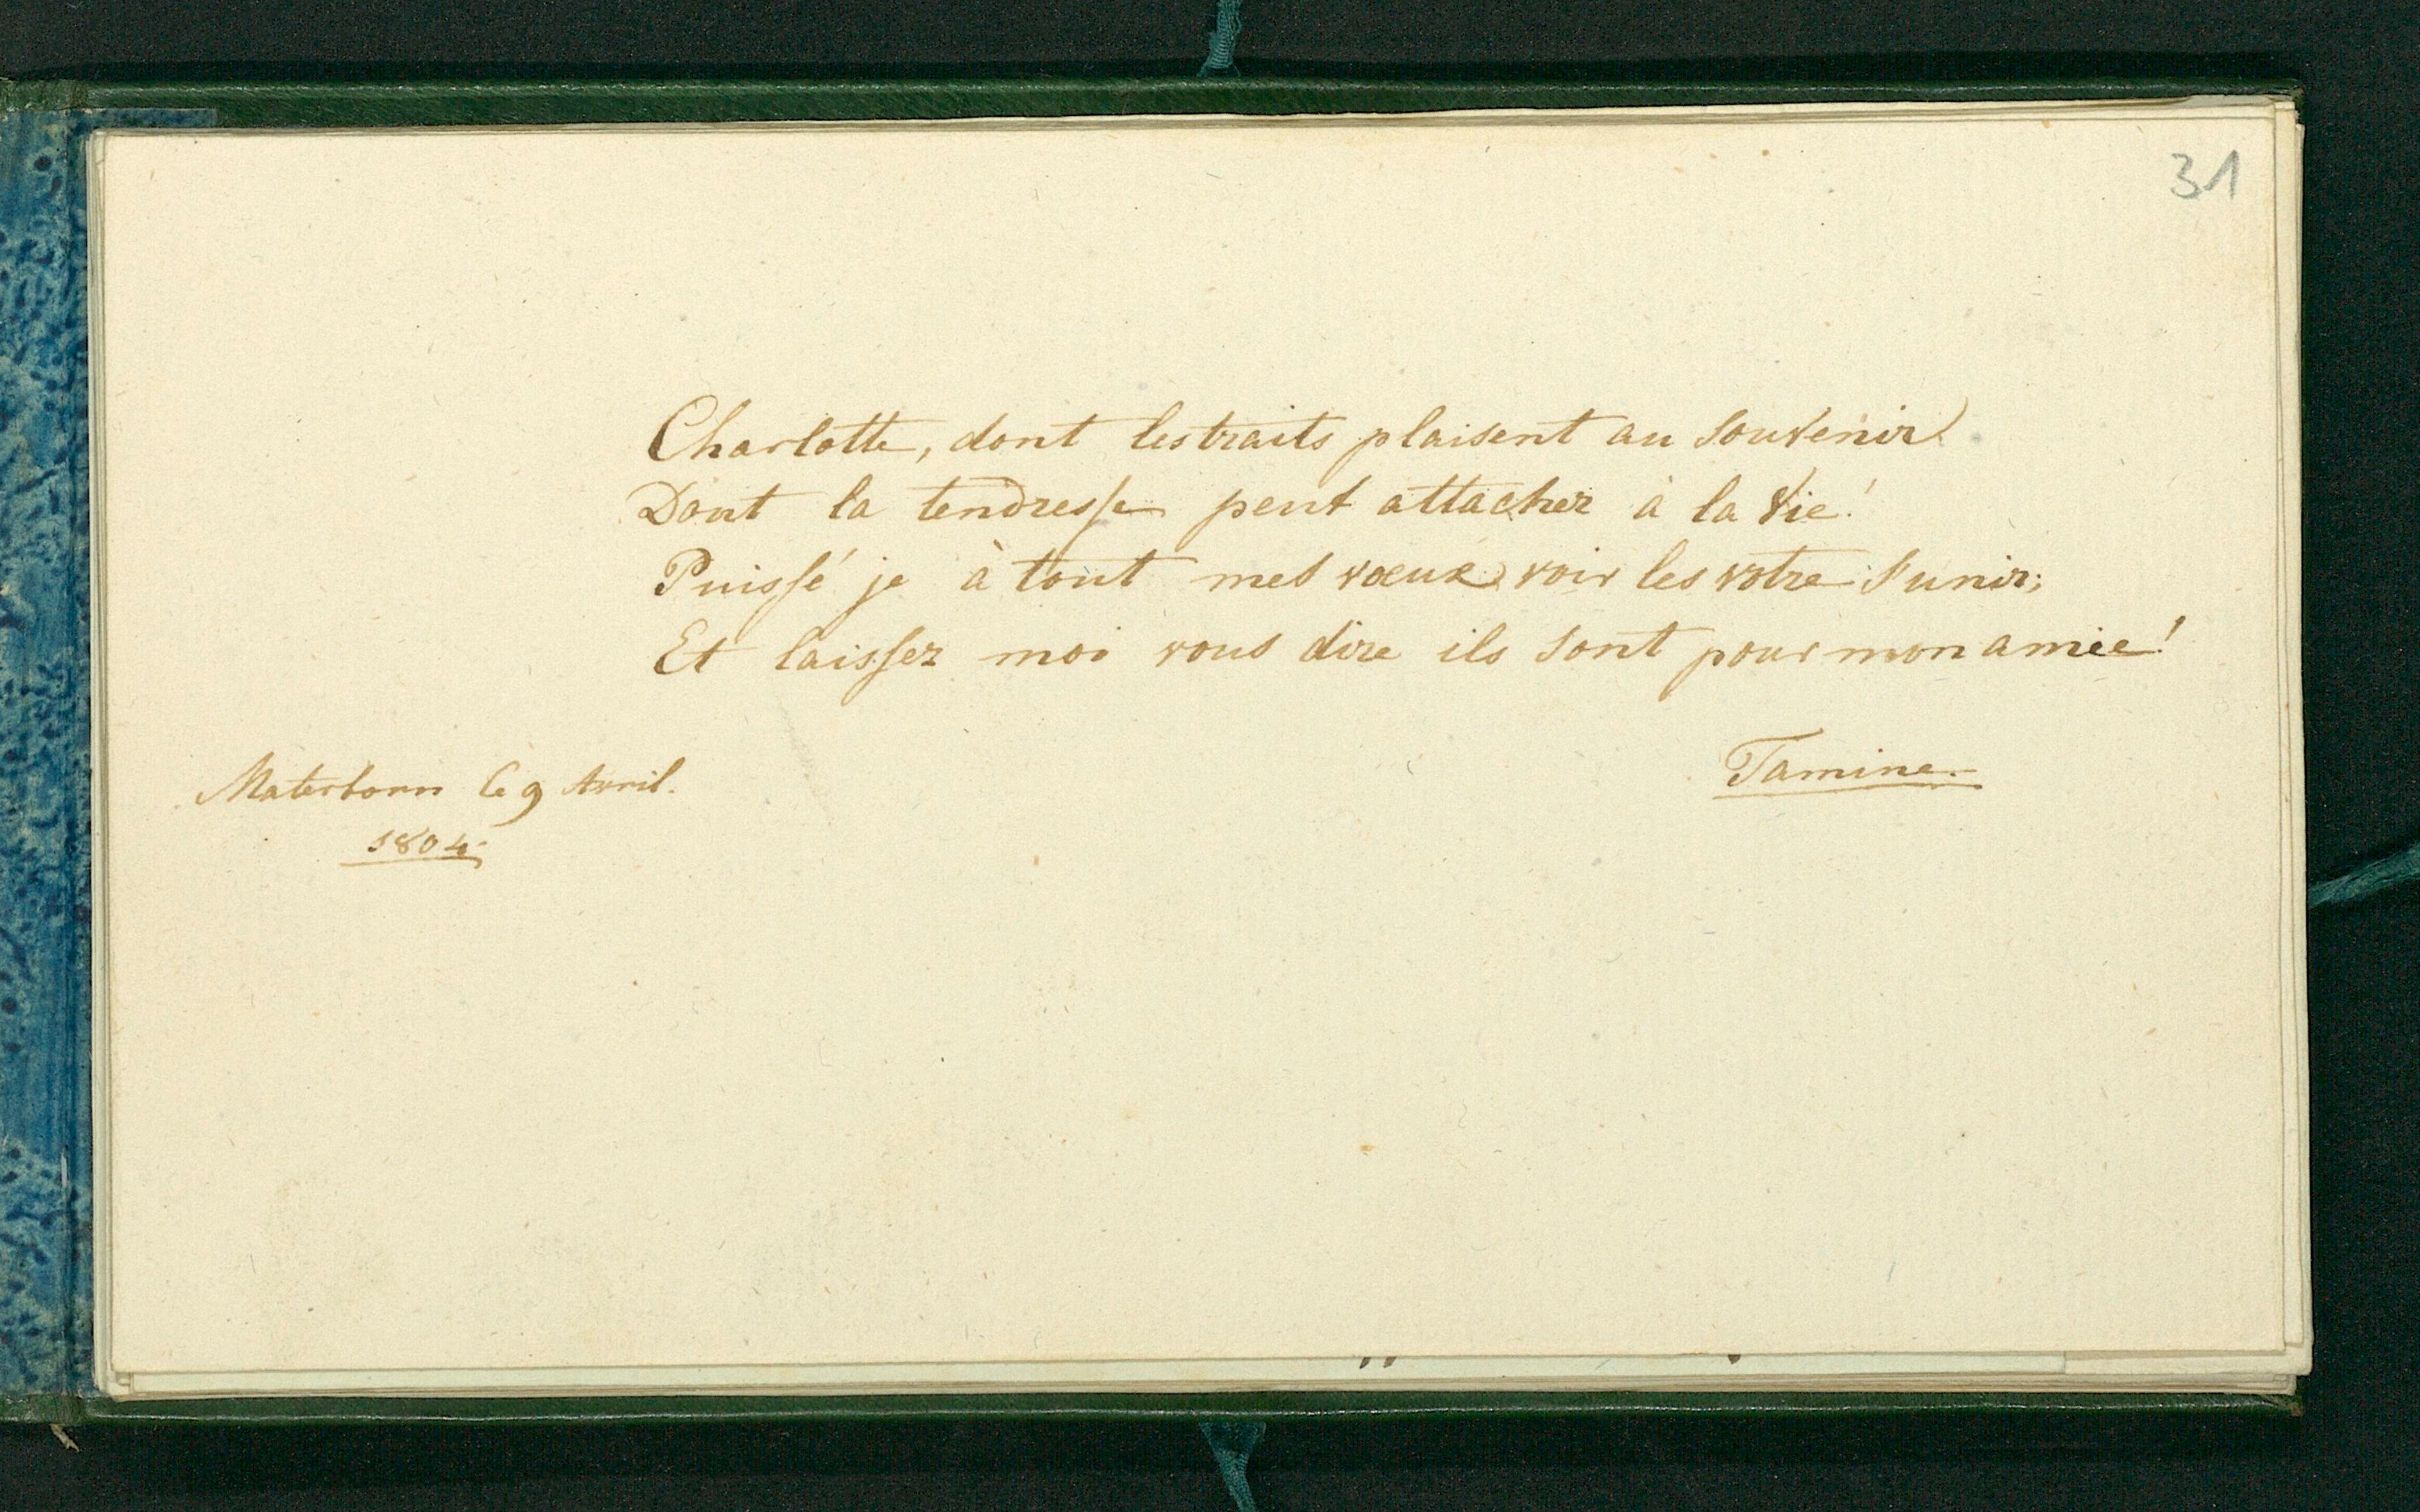 31
Charlotte, dont les traits plaisent au souvenir
Dont la tendresse peut attacher à la vie!
Puissé je à tout mes vœux voir les votre s'unir;
Et laissez moi vous dire ils sont pour mon amie!
Tamine.
Materborn le 9 Avril.
1804.